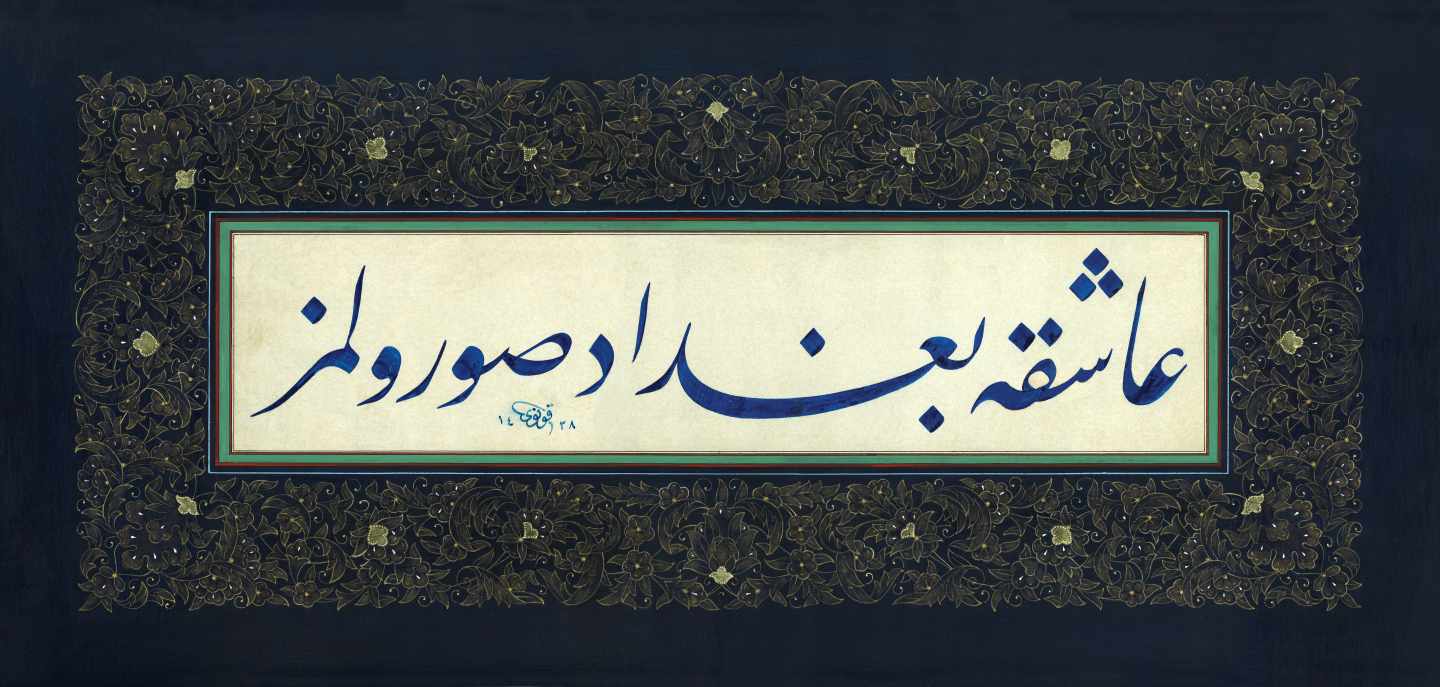 عاشقه بغداد صورولمز
قونوی ١٤٣٨